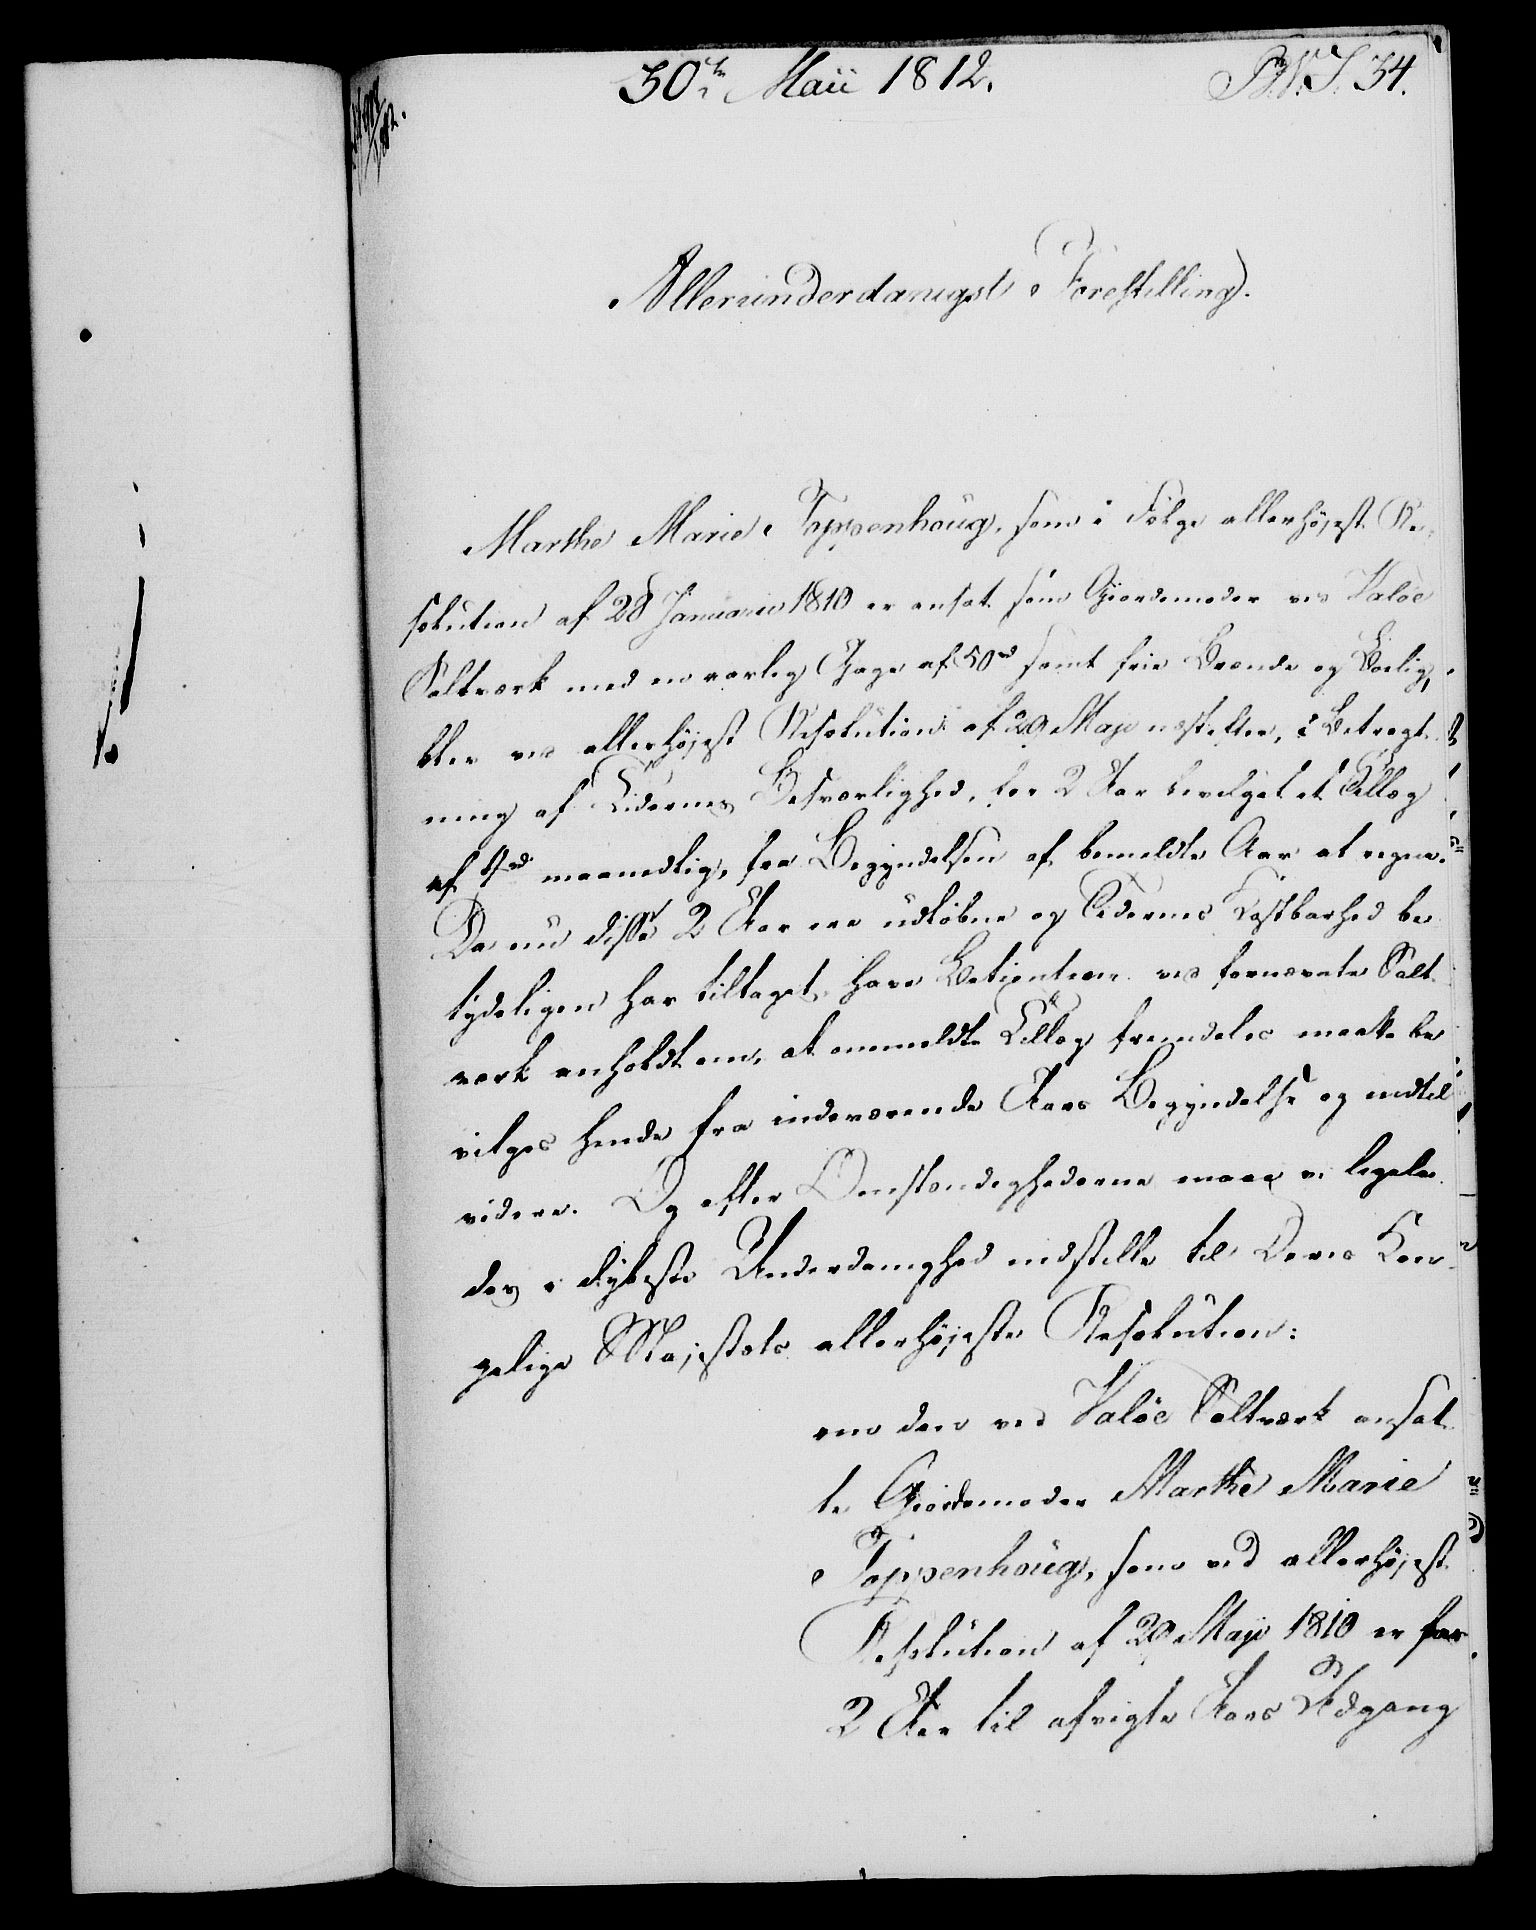 30te Maii 1812.
Allerunderdanigst Forestilling.
Marthe Marie Toppenhoug, som i Følge allerhøjest Re-
solution af 28 Januarii 1810 er ansat som Giordemoder ved Valøe
Saltværk med en aarlig Gage af 50 rd samt frie Brænde og Bolig,
blev ved allerhøjest Resolution af 29 Maji næstefter, i Betragt-
ning af Tidernes Besværlighed, for 2 Aar bevilget et Tillæg
af 4 rd maanedlig, fra Begyndelsen af bemeldte Aar at regne.
Da nu disse 2 Aar ere udløbne og Tidernes Kostbarhed be-
tydeligen har tiltaget, have Betienterne ved fornævnte Salt-
værk anholdt om, at ommeldte Tillæg fremdeles maatte be-
vilges hende fra indeværende Aars Begyndelse og indtil
videre. Og efter Omstændighederne maae vi ligele-
des i dybeste Underdanighed indstille til Deres Kon-
gelige Majestæts allerhøjeste Resolution:
om den ved Valøe Saltværk ansat-
te Giordemoder Marthe Marie
Toppenhoug, som ved allerhøjest
Resolution af 29 Maji 1810 er for
2 Aar til afvigte Aars Udgang